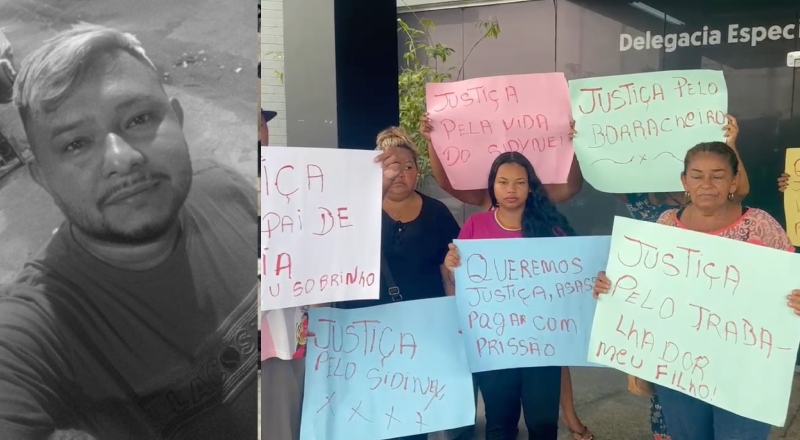 Delegacia Especi
JUSTIÇA
PELA VIDA
DO SIDYNEY
JUSTIÇA PELO
BORRACHEIRO
IÇA
PAI DE
IA
U SOBRINHO
QUEREMOS
JUSTIÇA, ASAS
PAGAR COM
PRISSÃO
JUSTIÇA
PELO TRABA-
LHADOR
MEU FILHO!
JUSTIÇA
PELO SIDINEY
X X X X